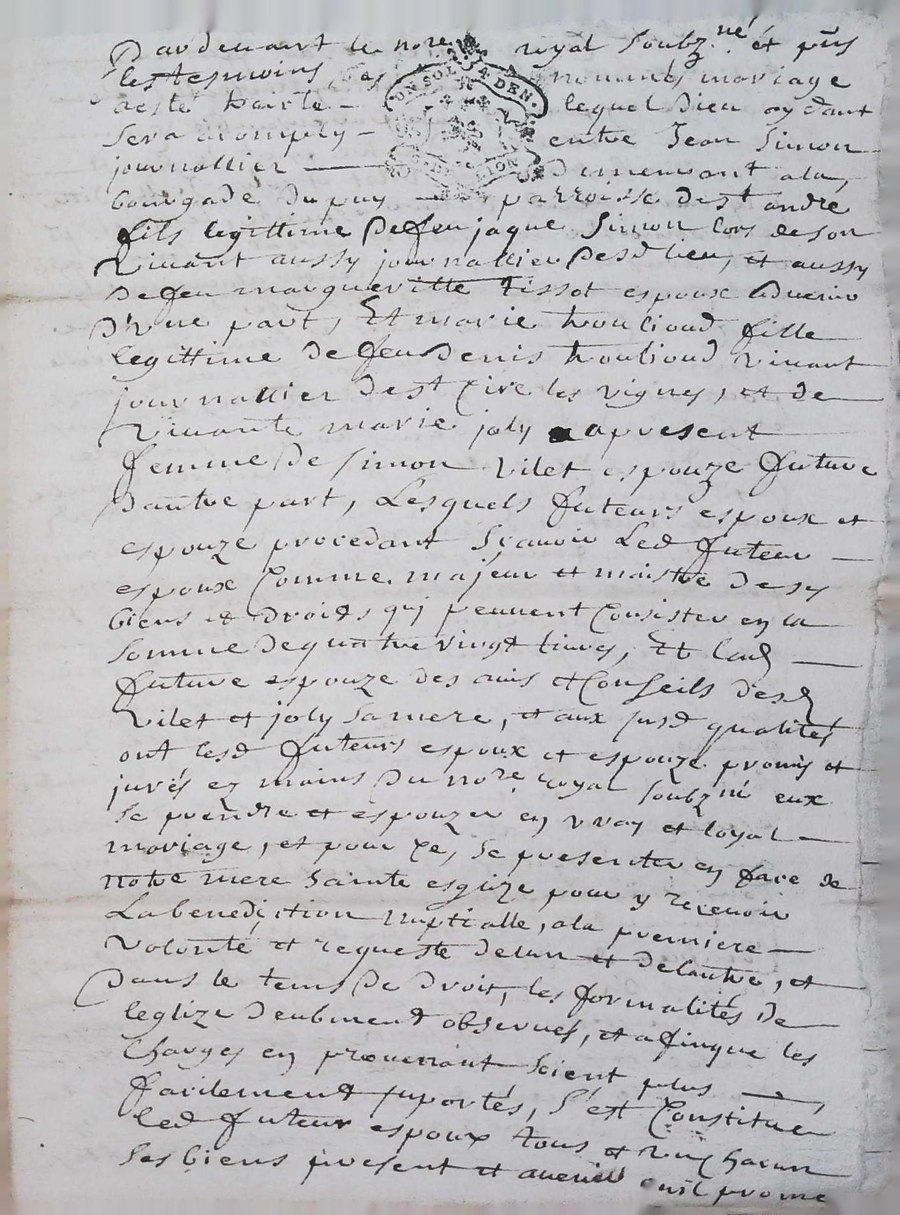 Pardevant le no.re royal soubz.né et p̃ns
les tesmoins bas nommés mariage
a esté traicté lequel Dieu aydant
sera accomply entre Jean Simon
journallier demeurant a la
bourgade du puy parroisse de s.t andré
fils legittime de feu jaque Simon lors de son
vivant aussy journallier desd lieu, et aussy
de feu margueritte tissot espoux advenir
d'une part, Et marie trouilloud fille
legittime de feu denis trouilloud vivant
journallier de s.t Cire les vignes, et de
vivante marie joly apresent
femme de simon vilet espouze future
dautre part, Lesquels futeurs espoux et
espouze procedant sçavoir Led futeur
espoux Comme majeur et maistre de sy
biens et droits qui peuvent Consister en la
somme de quatre vingt livres, Et lad
future espouze des avis et Conseils desd
vilet et joly sa mere, et aux susd qualités
ont lesd futeurs espoux et espouze promis et
jurés ez mains du no.re royal soubz.né eux
se prendre et espouzer en vray et loyal
mariage, et pour ce, se presenter en face de
notre mere sainte esglize pour y recevoir
La benediction nuptialle, a la premiere
volonté et requeste de lun et de lautre, et
dans le tems de droit, les formalités de
leglize deubment observés, et afin que les
Charges en provenant soient plus
facilement suportés, s'est Constitué
led futeur espoux tous et un chacun
ses biens present et avenir quil prome
UN SOL 4 DEN.